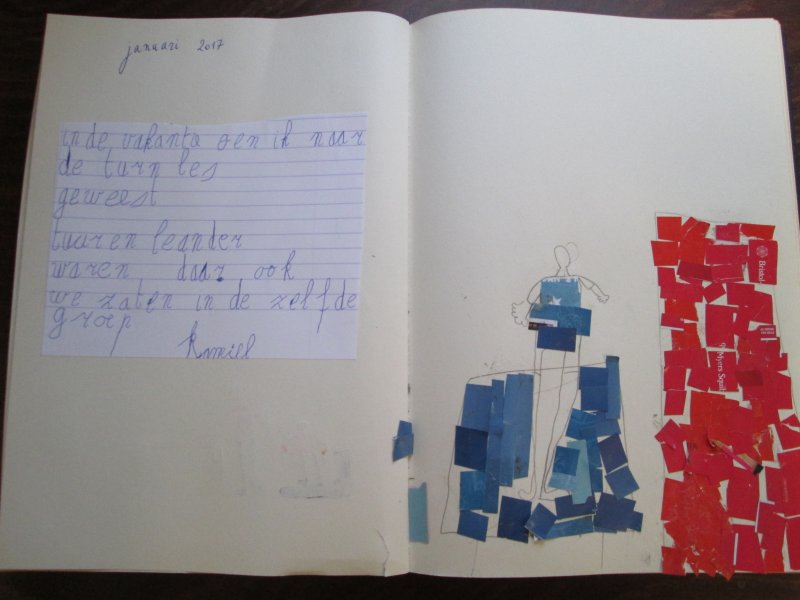 januari 2017
in de vakantə gen ik naar
de turn les
geweest
tuuren leander
waren daar ook
we zaten in de zelfde
groep
kamiel
Bristol
Myers Squib